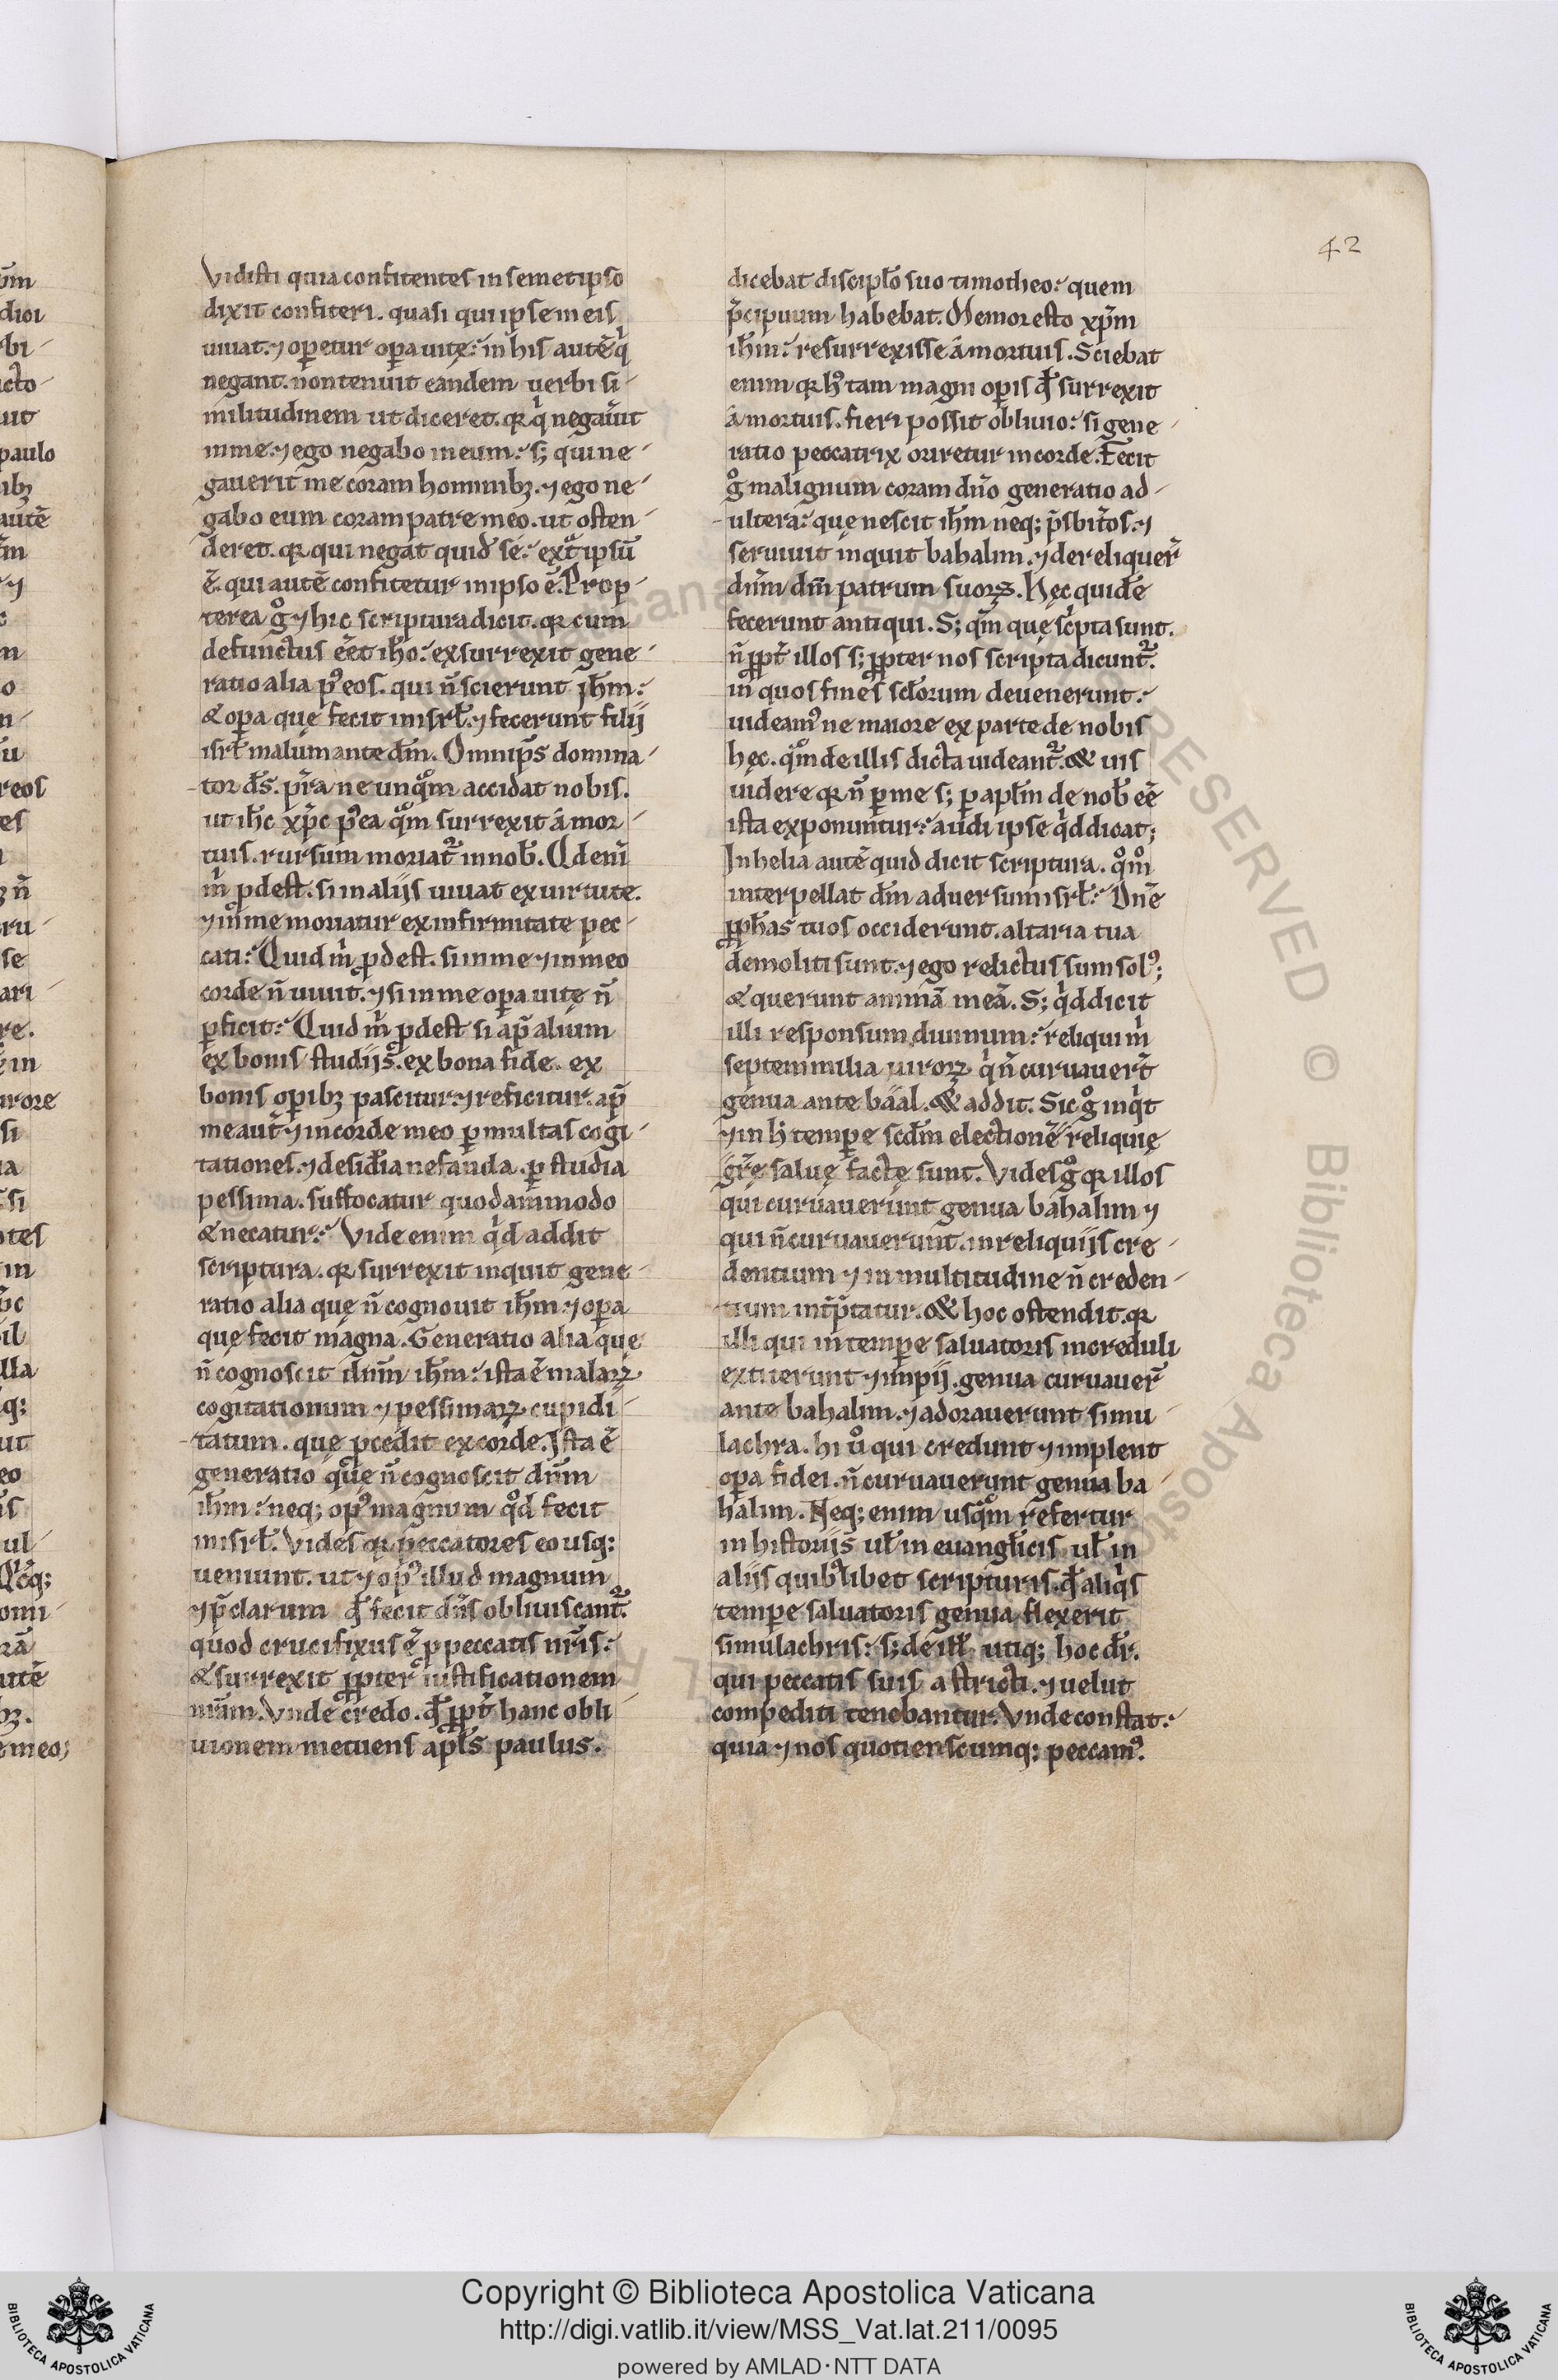 42
Vidisti quia confitentes in semetipso
dixit confiteri. quasi qui ipse in eis
uiuat. ⁊ opetur opa uitę: in his autē q̇
negant. non tenuit eandem uerbi si-
militudinem ut diceret. qꝛ q̇ negauit
in me. ⁊ ego negabo in eum: s; qui ne-
gauerit me coram hominibꝫ. ⁊ ego ne-
gabo eum coram patre meo. ut osten-
deret. qꝛ qui negat quid sē: ext ipsū
ē. qui autē confitetur in ipso ē. Prop-
terea g° ⁊ hic scriptura dicit. qꝛ cum
defunctus eēt iħo: exsurrexit gene-
ratio alia p⁹ eos. qui ñ scierunt iħm:
& opa quę fecit in isrł. ⁊ fecerunt filij
isrł malum ante dm̄. Omnip̄s domina-
tor ds̄. p̄ra ne unq°m accidat nobis.
ut iħc xp̄c p⁹ea q°m surrexit á mor-
tuis. rursum moriat᷑ in nob̄. Qd enī
m̍ ꝓdest. si in alijs uiuat ex uirtute.
⁊ in me moriatur ex infirmitate pec-
cati: Quid m̍ ꝓdest. si in me ⁊ in meo
corde ñ uiuit. ⁊ si in me opa uitę ñ
ꝑficit: Quid m̍ ꝓdest si ap̄ alium
ex bonis studijs. ex bona fide. ex
bonis opibꝫ pascitur. ⁊ reficitur. ap̄
me aut̄ ⁊ in corde meo ꝑ multas cogi-
tationes. ⁊ desid̄ia nefanda. ꝑ studia
pessima. suffocatur quodammodo
& necatur: Vide enim q̍d addit
scriptura. qꝛ surrexit inquit gene-
ratio alia quę ñ cognouit iħm ⁊ opa
quę fecit magna. Generatio alia quę
ñ cognoscit dn̄m iħm: ista ē malaꝝ
cogitationum ⁊ pessimaꝝ cupidi-
tatum. quę ꝓcedit ex corde. Ista ē
generatio quę ñ cognoscit dn̄m
iħm: neq; op⁹ magnum q°d fecit
in isrł. Vides qꝛ peccatores eo usq;
ueniunt. ut ⁊ op⁹ illud magnum
⁊ p̄clarum qđ fecit dn̄s obliuiscant᷑.
quod crucifixus ē ꝓ peccatis nr̄is:
& surrexit ꝓpter iustificationem
nr̄am. Vnde credo. qđ ꝓpt̄ hanc obli-
uionem metuens apl̄s paulus.
dicebat discipl̄o suo timotheo: quem
p̄cipuum habebat. Memor esto xp̄m
iħm: resurrexisse á mortuis. Sciebat
enim qꝛ h⁹ tam magni opis qđ surrexit
á mortuis. fieri possit obliuio: si gene-
ratio peccatrix oriretur in corde. Fecit
g° malignum coram dn̄o generatio ad-
ultera: quę nescit iħm neq; p̄sbit̄os. ⁊
seruiuit inquit bahalim. ⁊ dereliquer̄
dn̄m dm̄ patrum suoꝝ. Hęc quidē
fecerunt antiqui. S; q̄m quę sc̍pta sunt.
ñ ꝓpt̄ illos s; ꝓpter nos scripta dicunt᷑.
in quos fines scl̄orum deuenerunt:
uideam⁹ ne maiore ex parte de nobis
hęc. q°m de illis dicta uideant᷑. & uis
uidere qꝛ ñ ꝑ me s; ꝑ apl̄m de nob̄ eē
ista exponuntur: audi ipse q̍d dicat;
In helia autē quid dicit scriptura. q°m°
interpellat dm̄ aduersum isrł: Dn̄e
ꝓpħas tuos occiderunt. altaria tua
demoliti sunt. ⁊ ego relictus sum sol⁹;
& querunt animā meā. S; q̍d dicit
illi responsum diuinum: reliqui m̍
septem milia uiroꝝ q̍ ñ curuauer̄t
genua ante báál. & addit. Sic g° inq̍t
⁊ in h̍ tempe scđm electionē reliquię
gr̄ę saluę factę sunt. Vides g° qꝛ illos
qui curuauerunt genua bahalim ⁊
qui ñ curuauerunt. in reliquijs cre-
dentium ⁊ in multitudine ñ creden-
tium int̄p̄tatur. & hoc ostendit. qꝛ
illi qui in tempe saluatoris increduli
extiterunt ⁊ impij. genua curuauer̄
ante bahalim. ⁊ adorauerunt simu-
lachra. hi u° qui credunt ⁊ implent
opa fidei. ñ curuauerunt genua ba-
halim. Neq; enim usq°m refertur
in historijs ul̄ in euangl̄icis ul̄ in
alijs quib⁹libet scripturis. qđ aliq̍s
tempe saluatoris genua flexerit
simulachris: s; de ill̄ utiq; hoc dr̄.
qui peccatis suis astricti. ⁊ uelut
compediti tenebantur. Vnde constat:
quia ⁊ nos quotienscumq; peccam⁹.
Copyright © Biblioteca Apostolica Vaticana
http://digi.vatlib.it/view/MSS_Vat.lat.211/0095
powered by AMLAD·NTT DATA
BIBLIOTECA APOSTOLICA VATICANA
BIBLIOTECA APOSTOLICA VATICANA